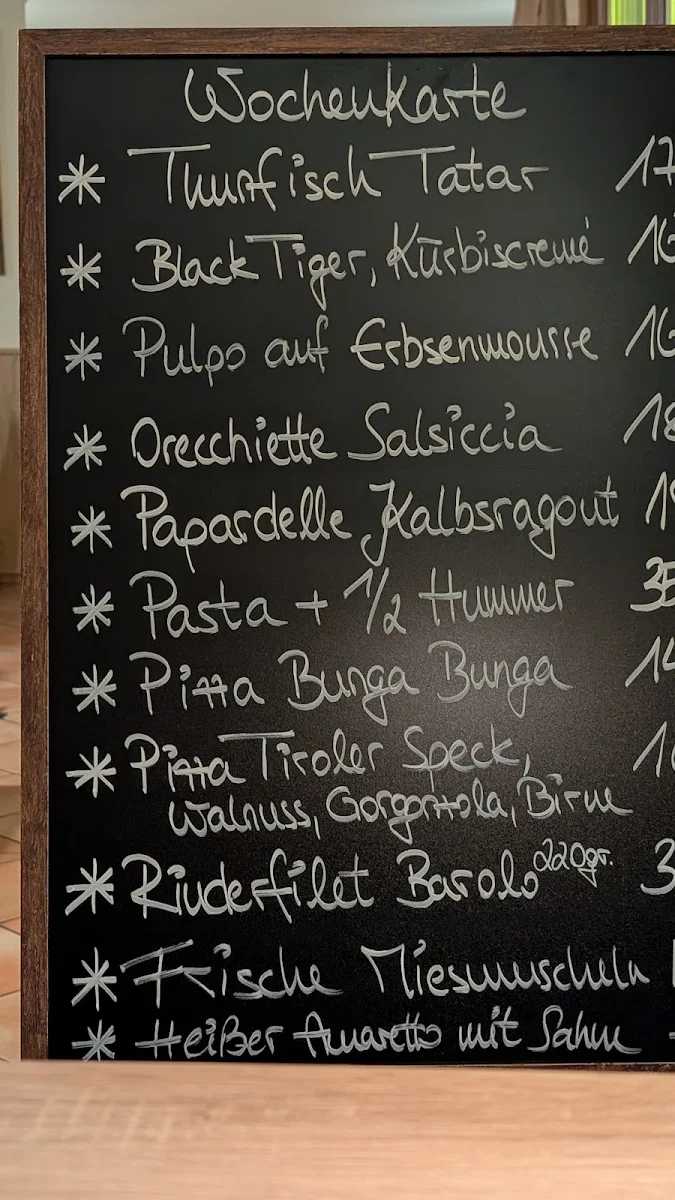 Wochenkarte
* Thunfisch Tatar 17
* Black Tiger, Kürbiscreme 16
* Pulpo auf Erbsenmousse 16
* Orecchiette Salsiccia 18
* Papardelle Kalbsragout 1
* Pasta + 1/2 Hummer 35
* Pizza Bunga Bunga 14
* Pizza Tiroler Speck,
Walnuss, Gorgonzola, Birne
* Rinderfilet Barolo 220gr. 3
* Frische Miesmuscheln
* Heißer Amaretto mit Sahne